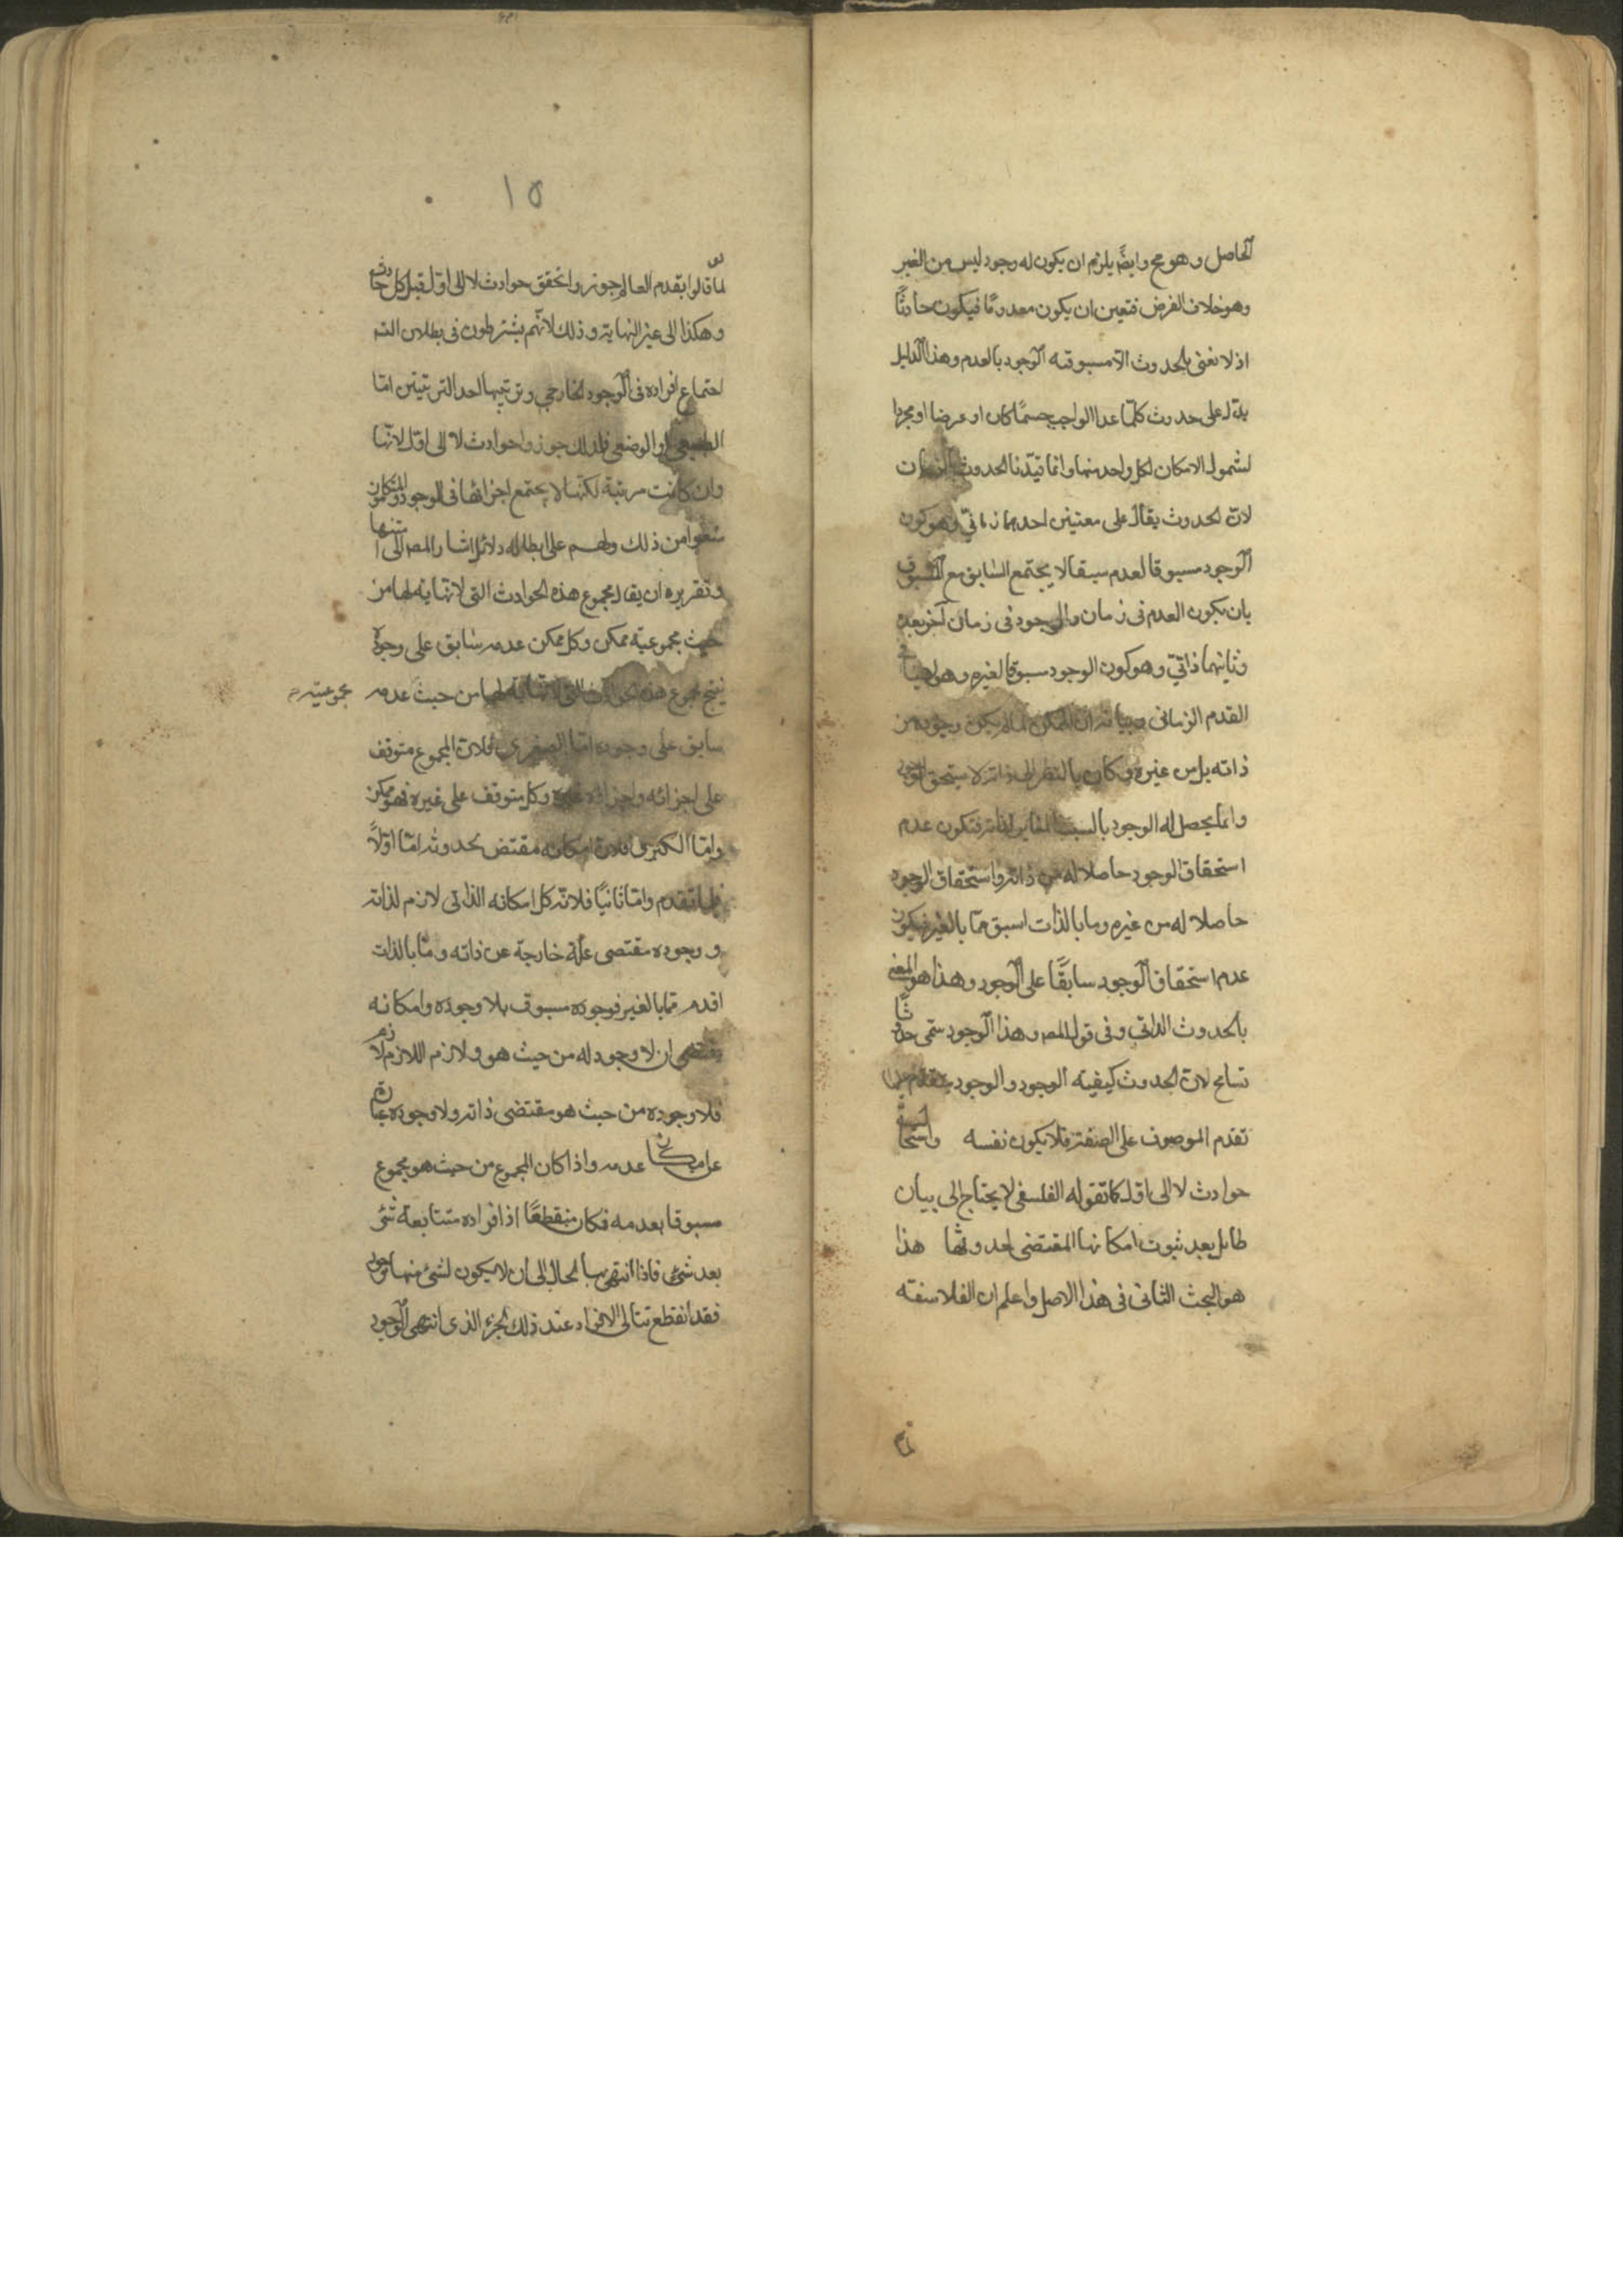 الحاصل وهو مح وايضًا يلزم ان يكون له وجود ليس من الغير
وهو خلاف الفرض فتعين ان يكون معدومًا فيكون حادثًا
اذ لا نعنى بالحدوث الّا مسبوقية الوجود بالعدم وهذا الدليل
يدل على حدوث كلما عدا الواجب جسمًا كان او عرضا او مجردا
لشمول الامكان لكل واحد منها وانما قيّدنا الحدوث بالزمان
لان الحدوث يقال على معنيين احدهما زمانيّ وهو كون
الوجود مسبوقا لعدم سبقا لا يجتمع السابق مع المسبوق
بان يكون العدم فى زمان والوجود فى زمان آخر بعده
وثانيهما ذاتيّ وهو كون الوجود مسبوقا لغيره وهو
القدم الزمانى وبيانه ان الممكن لما لم يكن وجوده من
ذاته بل من غيره وكان بالنظر الى ذاته لا يستحق الوجود
وانما يحصل له الوجود بالسبب المغاير لذاته فتكون عدم
استحقاق الوجود حاصلا له من ذاته واستحقاق الوجود
حاصلا له من غيره وما بالذات اسبق مما بالغير فيكون
عدم استحقاق الوجود سابقًا على الوجود وهذا هو المعنى
بالحدوث الذاتى وفى قول المصـ وهذا الوجود سمّى حدوثًا
تسامح لان الحدوث كيفية الوجود والوجود يتقدم عليها
تقدم الموصوف على الصفة فلا يكون نفسه واستحالة
حوادث لا الى اوّل كما تقوله الفلسفى لا يحتاج الى بيان
طائل بعد ثبوت امكانها المقتضى لحدوثها هذا
هو البحث الثانى فى هذا الاصل واعلم ان الفلاسفة
١٥
لمّا قالوا بقدم العالم جوزوا تحقق حوادث لا الى اوّل قبل كل حادث
وهكذا الى غير النهاية وذلك لانهم يشترطون فى بطلان التسـ
اجتماع افراده فى الوجود الخارجي وترتيبها احد الترتيبين امّا
الطبيعى او الوضعى فلذلك جوزوا حوادث لا الى اوّل لانّها
وان كانت مرتبة لكنها لا يجتمع اجزائها فى الوجود والمتكلمون
منعوا من ذلك ولهم على ابطاله دلائل اشار المصـ الى
وتقريره ان يقال مجموع هذه الحوادث التى لا نهاية لها من
حيث مجموعيّة ممكن وكل ممكن عدمه سابق على وجوده
ينتج مجموع هذه الحوادث التى لا نهاية لها من حيث عدمه
مجموعيته
سابق على وجوده امّا الصغرى فلانّ المجموع متوقف
على اجزائه واجزاؤه غيره وكل متوقف على غيره فهو ممكن
وامّا الكبرى فلان امكانه مقتض لحدوثه امّا اوّلًا
فلما تقدم وامّا ثانيًا فلانّه كل امكانه الذاتى لازم لذاته
ووجوده مقتضى علّة خارجة عن ذاته وما بالذات
اقدم مما بالغير فوجوده مسبوق بلا وجوده وامكانه
يقتضى ان لا وجود له من حيث هو ولازم اللازم لازم
فلا وجوده من حيث هو مقتضى ذاته ولا وجوده عبارة
عدمه واذا كان المجموع من حيث هو مجموع
مسبوقا بعدمه فكان منقطعًا اذ افراده متتابعة شئ
بعد شئ فاذا انتهى بنا الحال الى ان لا يكون لشئ منها وجود
فقد انقطع تتالى الافراد عند ذلك الجزء الذى انتهى الوجود